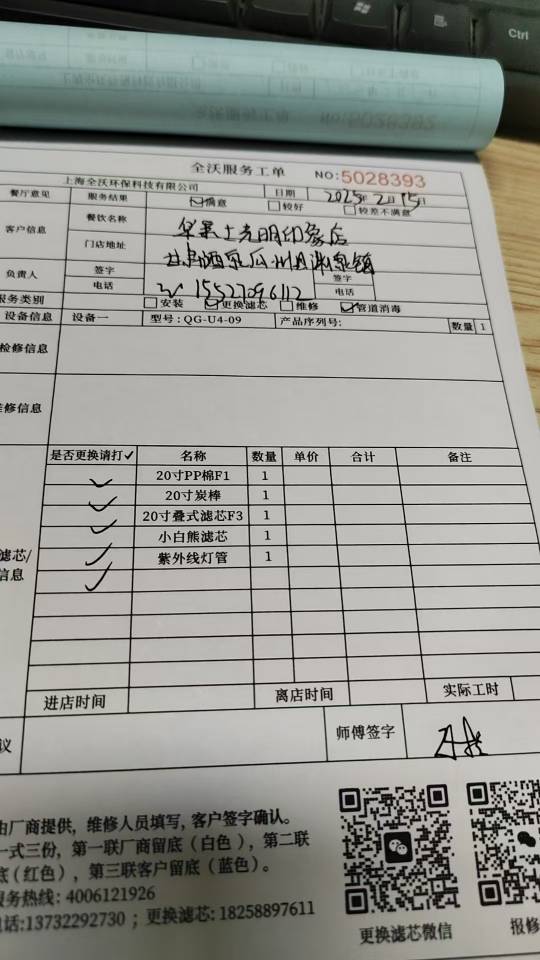 全沃服务工单 NO:5028393
上海全沃环保科技有限公司
餐厅意见 服务结果 满意 较好 较差不满意 日期 2025年2月15日
客户信息 餐饮名称 华莱士光明印象店
门店地址
负责人 签字 签字
电话 15527096112 电话
服务类别 安装 更换滤芯 维修 管道消毒
设备信息 设备一 型号:QG-U4-09 产品序列号: 数量 1
检修信息
维修信息
是否更换请打✓ 名称 数量 单价 合计 备注
✓ 20寸PP棉F1 1
✓ 20寸炭棒 1
✓ 20寸叠式滤芯F3 1
✓ 小白熊滤芯 1
✓ 紫外线灯管 1
滤芯/
信息
进店时间 离店时间 实际工时
议 师傅签字
由厂商提供，维修人员填写，客户签字确认。
一式三份，第一联厂商留底（白色），第二联
底（红色），第三联客户留底（蓝色）。
服务热线: 4006121926
电话:13732292730 ；更换滤芯: 18258897611
更换滤芯微信 报修
Ctrl